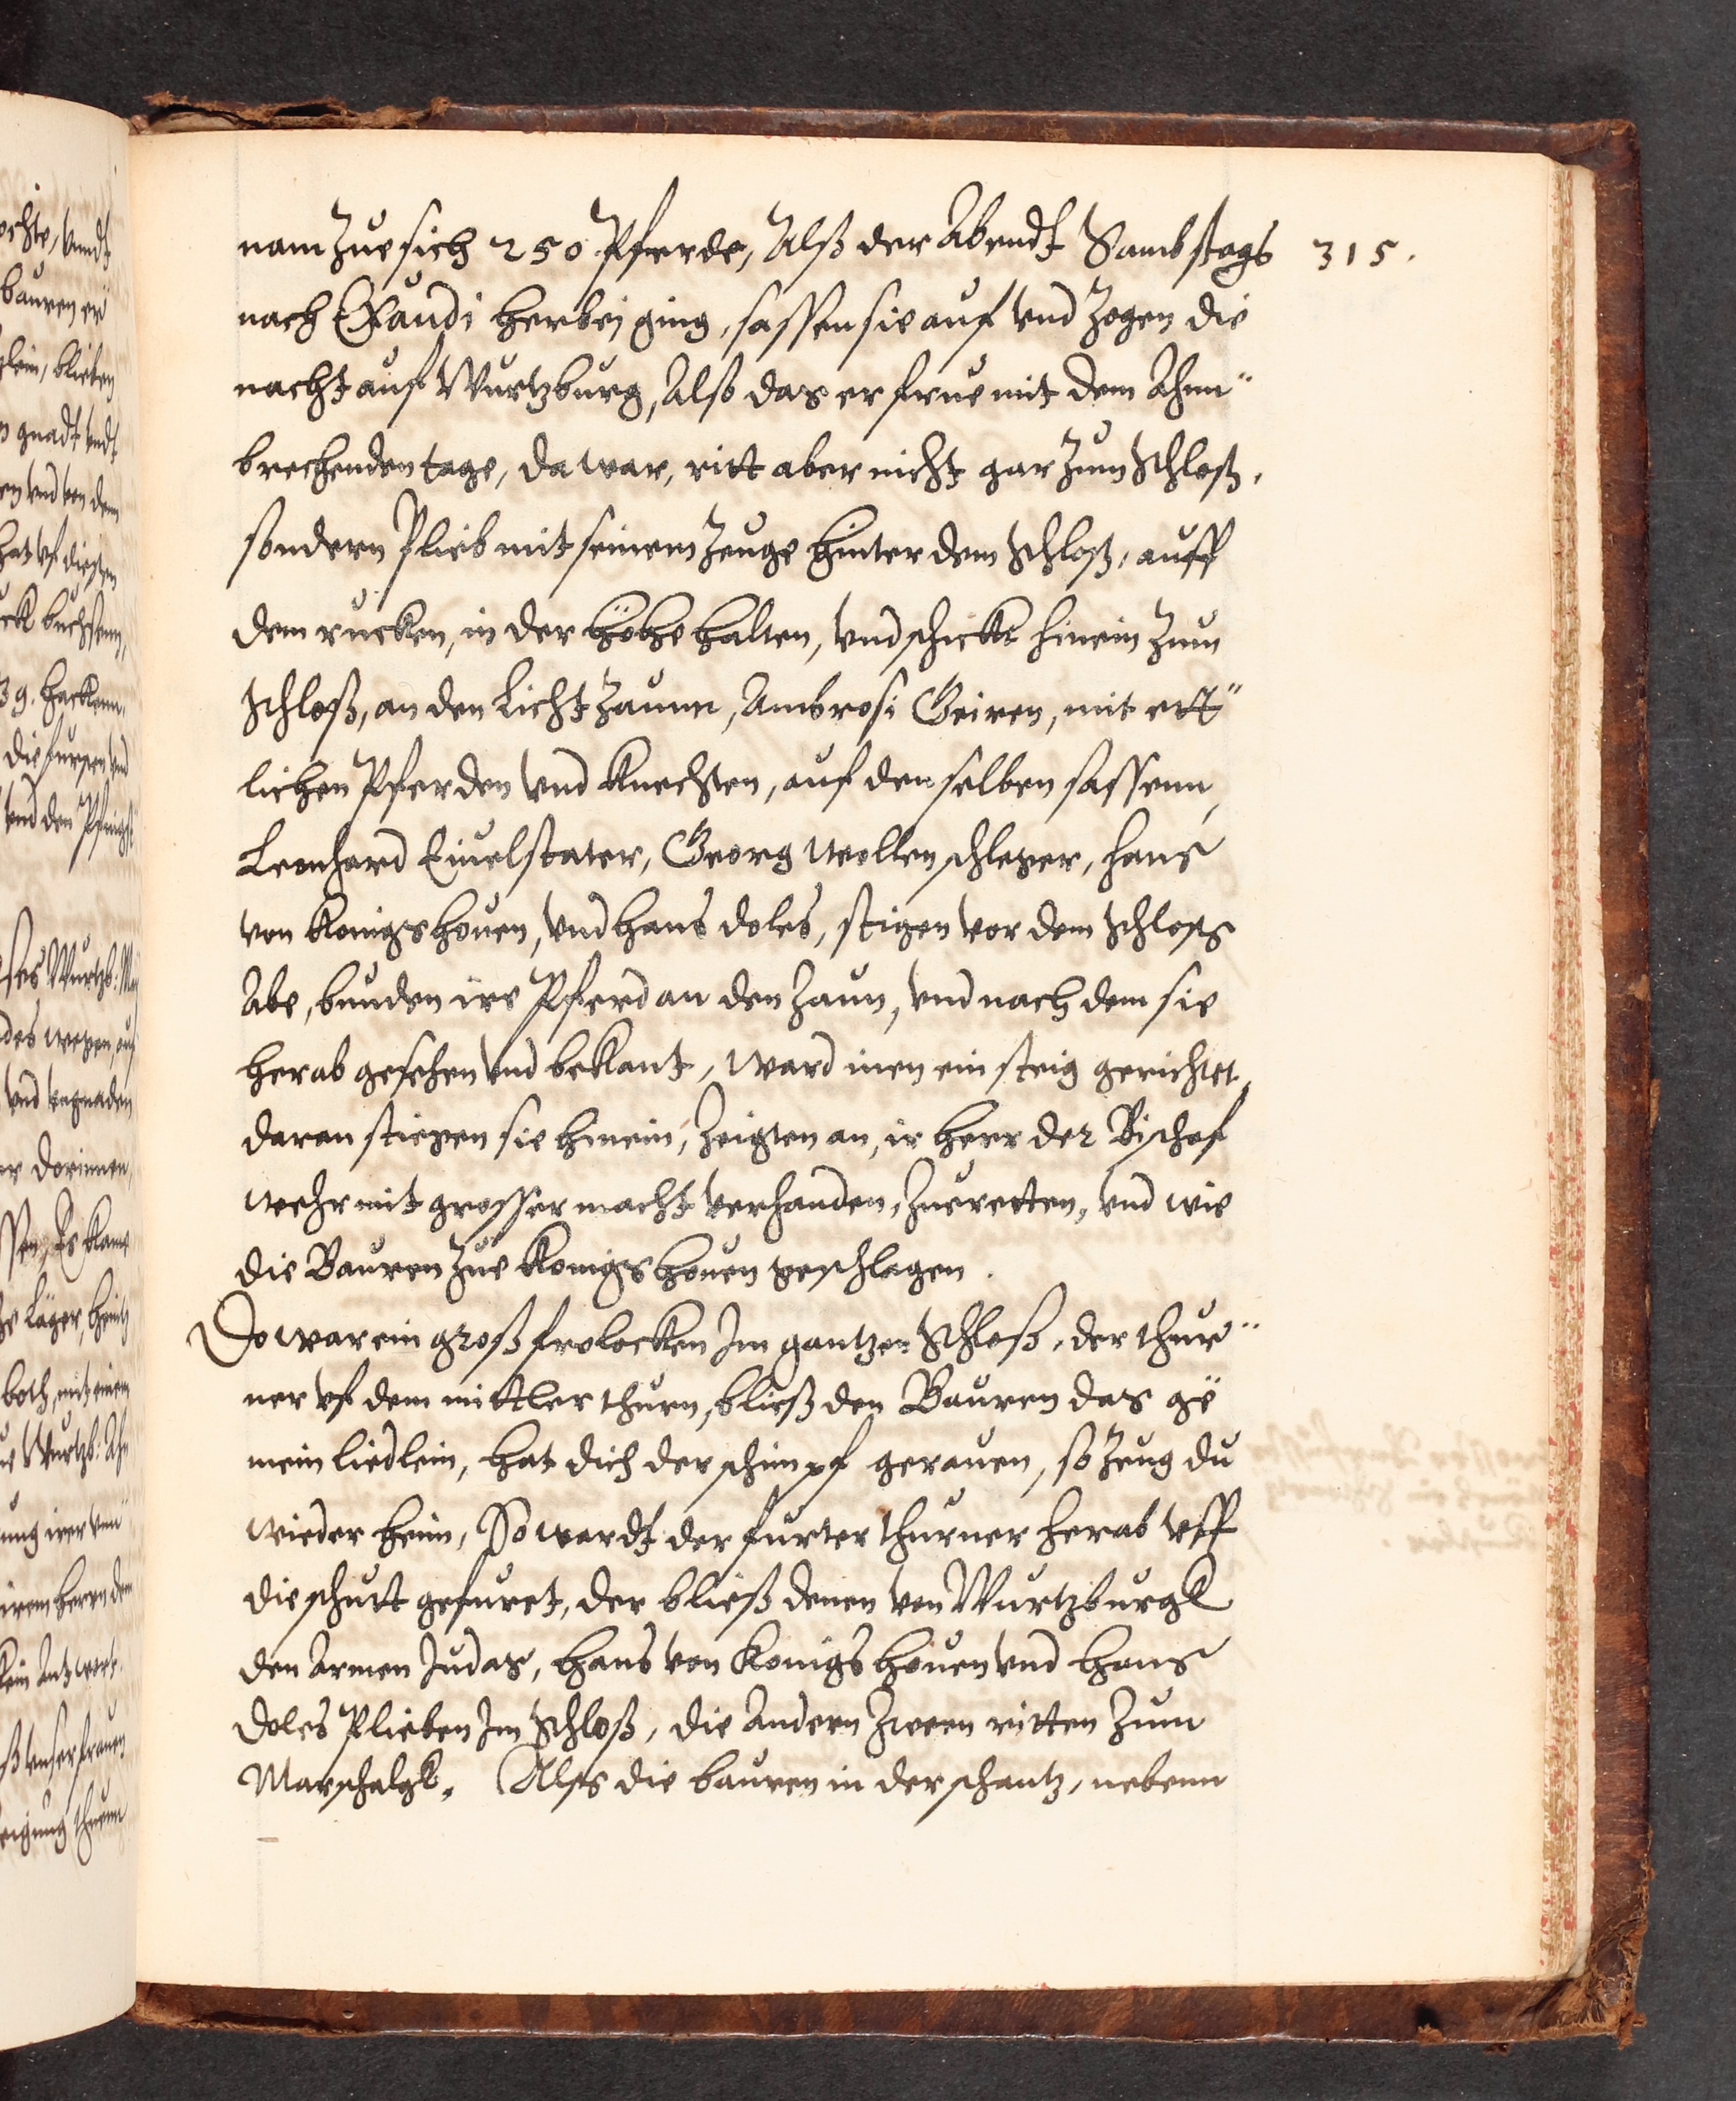 315.
nam Zue sich 250 Pferde, Alß der Abendt Sambstags
nach Exaudi herbej ging, sassen sie auf vnd Zogen die
nacht auf Wurtzburg, Also das er frue mit dem Ahnn¨
brechenden tage, da war, ritt aber nicht gar Zum Schloß,
sondern Plieb mit seinem Zeuge hinter dem Schloß, auff
dem rucken, in der höhe halten, vnd schickt hinein Zum
Schloß, an den Licht Zaunn, Ambrosi Geiren, mit ett¨
lichen Pferden vnd Knechten, auf denselben sassenn,
Leonhard Eiuelstater, Georg Wollenschleger, Hans
von Konigshouen, vnd Hans doles, stigen vor dem Schloss
Abe, bunden ire Pferd an den Zaun, vnd nach dem sie
herab gesehen vnd bekant, ward inen ein steig gerichtet,
daran stiegen sie hinein, Zeigten an, ir herr der Bischof
wehr mit grosser macht verhanden, Zuerretten, vnd wie
die Bauren Zue Konigshouen geschlagen.
Do war ein groß frolocken Im gantzen Schloß, der thur¨
ner vf dem mittler thurn, bließ den Bauren das ge
mein liedlein, hat dich der schimpf gerauen, so Zeug du
wieder heim, So wardt der furter thurner herab vff
die schutt gefuret, der bließ denen von Wurtzburgk
den Armen Judas, Hans von Konigshouen vnd Hans
doles Plieben Im Schloß, die Andern Zween ritten Zum
Marschalgk. Alss die bauren in der schantz, nebenn